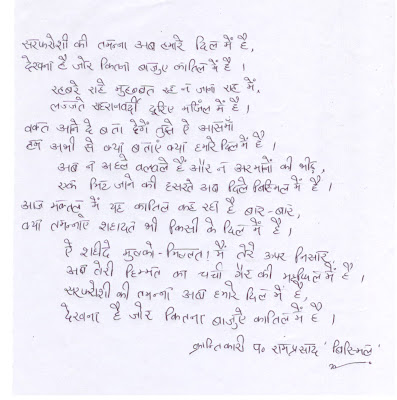 सरफरोशी की तमन्ना अब हमारे दिल में है,
देखना है जोर कितना बाजुए कातिल में है ।
रहबरे राहे मुहब्बत रह न जाना राह में,
लज्जते सहरानवर्दी दूरिए मंजिल में है ।
वक्त आने दे बता देंगें तुझे ऐ आसमाँ
हम अभी से क्या बताएँ क्या हमारे दिल में है ।
अब न अहले वलवले हैं और न अरमानों की भीड़,
एक मिट जाने की हसरत अब दिले बिस्मिल में है ।
आज मकतल में यह कातिल कह रहा है बार-बार,
क्या तमन्नाए शहादत भी किसी के दिल में है ।
ऐ शहीदे मुल्को-मिल्लत! मैं तेरे ऊपर निसार,
अब तेरी हिम्मत का चर्चा गैर की महफिल में है ।
सरफरोशी की तमन्ना अब हमारे दिल में है,
देखना है जोर कितना बाजुए कातिल में है ।
क्रान्तिकारी पं. रामप्रसाद 'बिस्मिल'